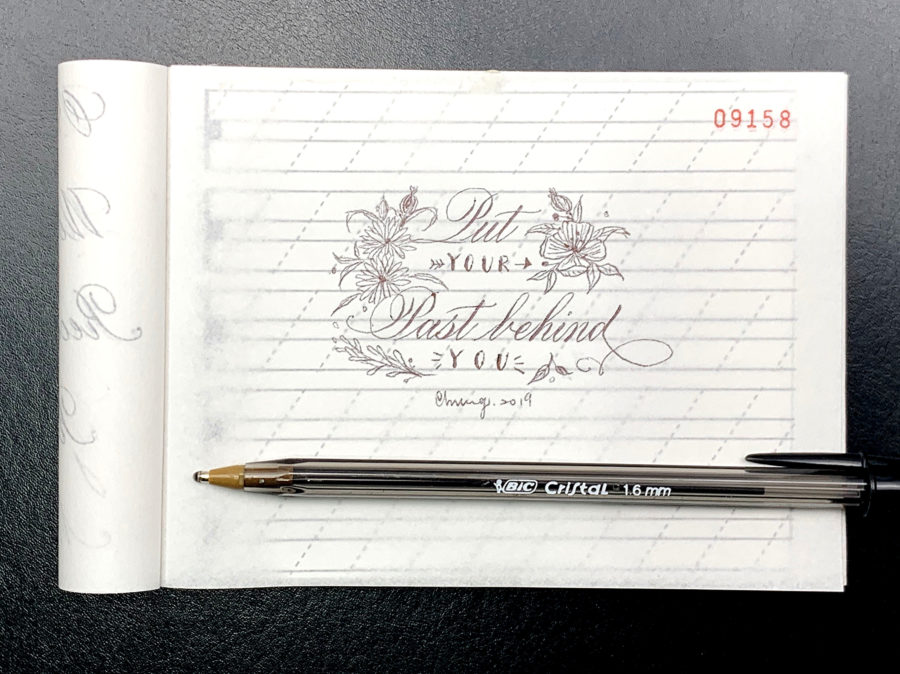 09158
Put
YOUR
Past behind
YOU
2019
BIC Cristal 1.6 mm